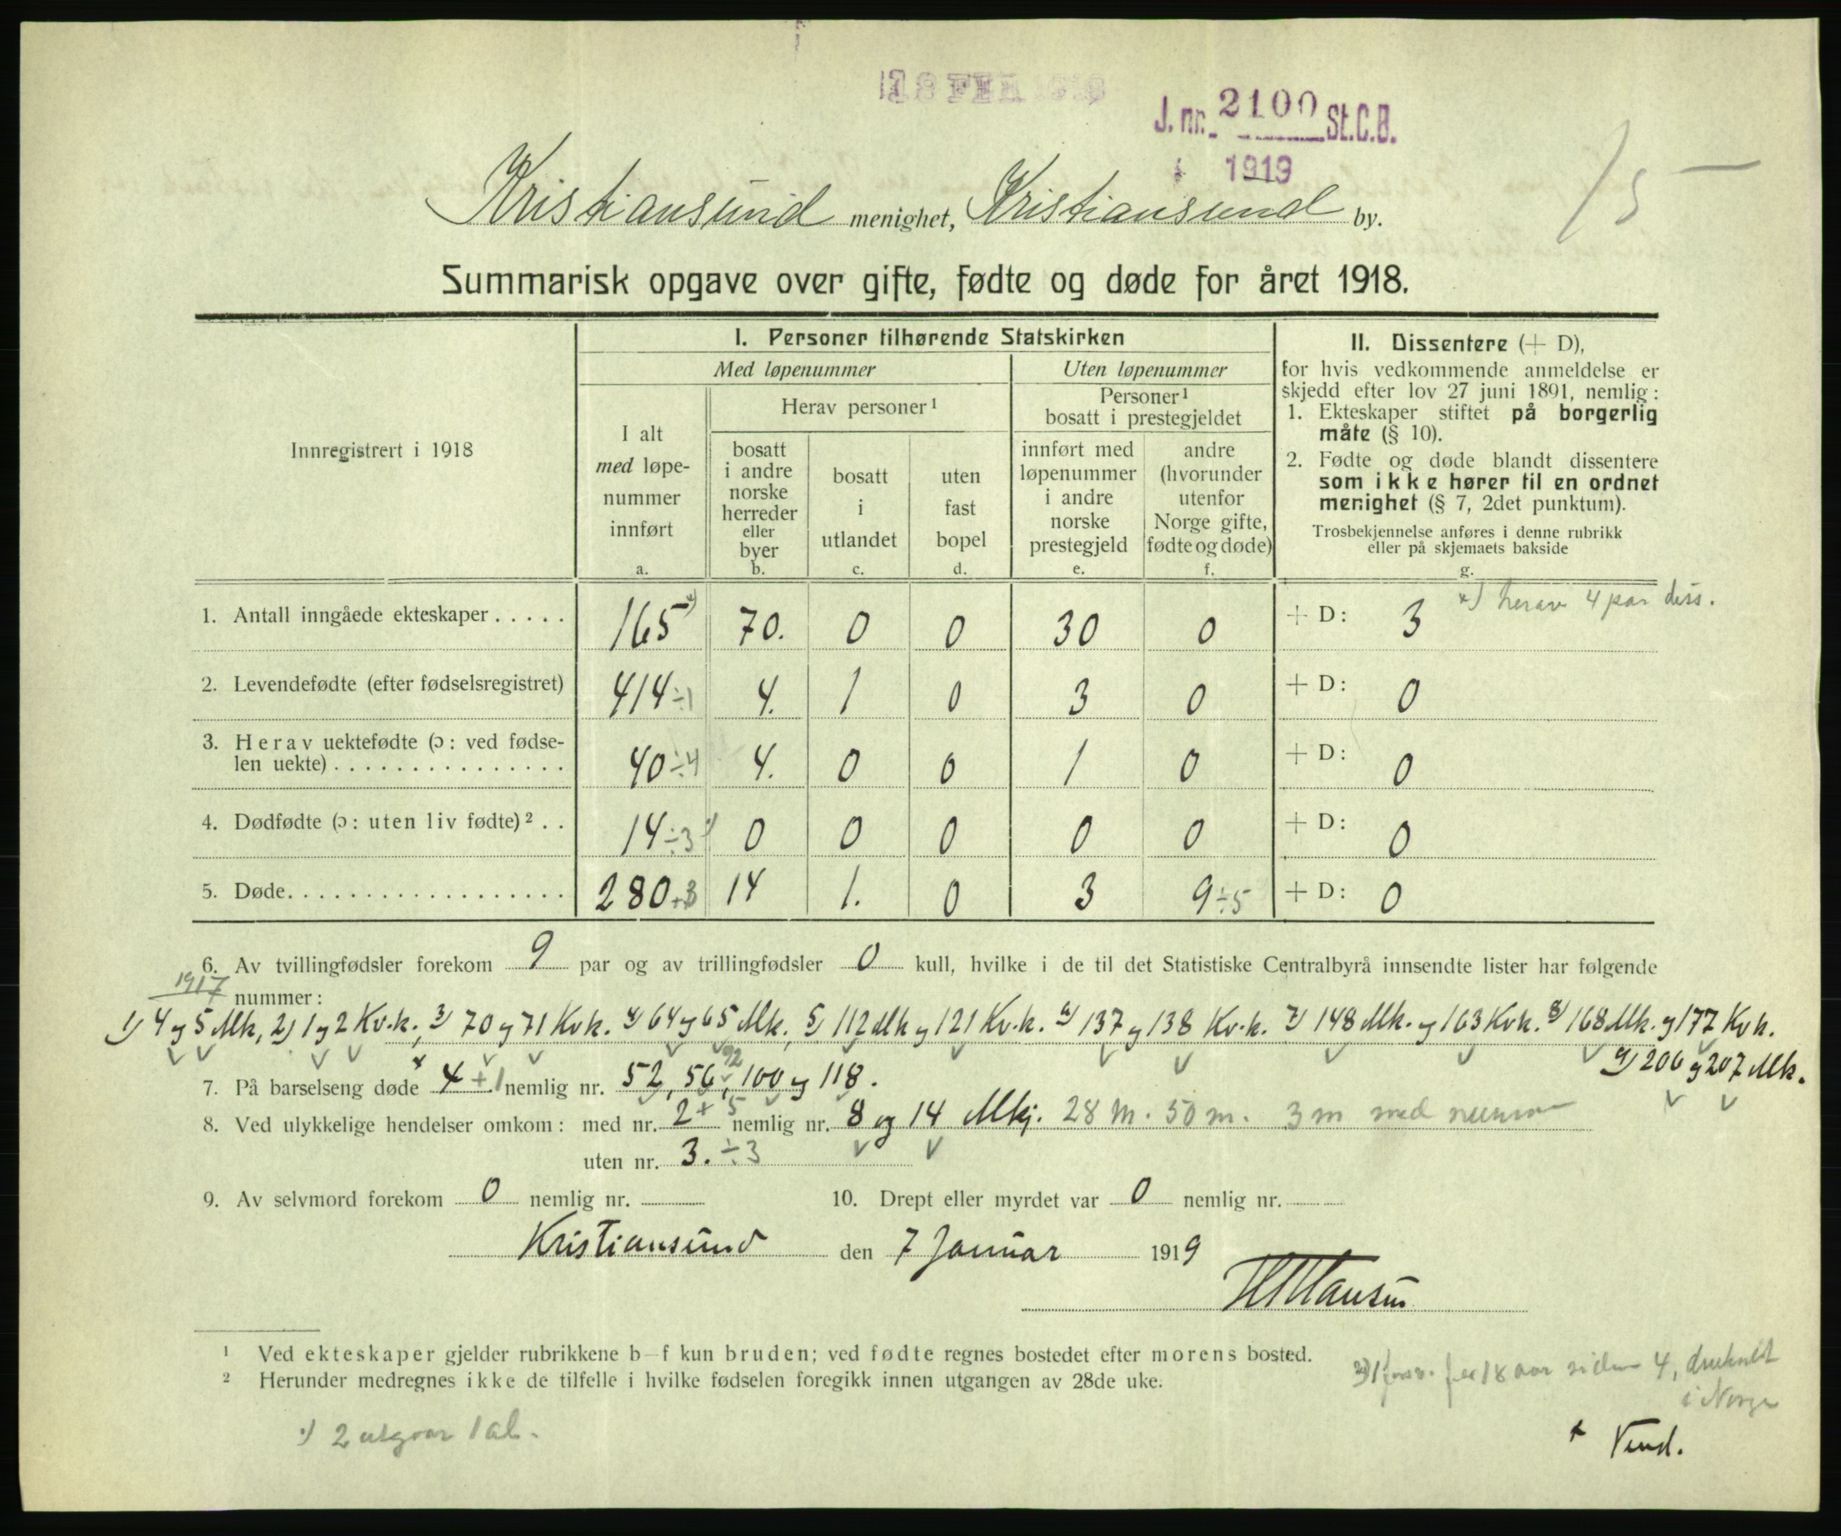 18 FEB 1919
J. nr. 2100 St.C.B.
1919
15
Kristiansund menighet, Kristiansund by.
Summarisk opgave over gifte, fødte og døde for året 1918.
Innregistrert i 1918
I. Personer tilhørende Statskirken
Med løpenummer
Uten løpenummer
I alt
med løpe-
nummer
innført
a.
Herav personer ¹
bosatt
i andre
norske
herreder
eller
byer
b.
bosatt
i
utlandet
c.
uten
fast
bopel
d.
Personer ¹
bosatt i prestegjeldet
innført med
løpenummer
i andre
norske
prestegjeld
e.
andre
(hvorunder
utenfor
Norge gifte,
fødte og døde)
f.
II. Dissentere (+ D),
for hvis vedkommende anmeldelse er
skjedd efter lov 27 juni 1891, nemlig:
1. Ekteskaper stiftet på borgerlig
måte (§ 10).
2. Fødte og døde blandt dissentere
som ikke hører til en ordnet
menighet (§ 7, 2det punktum).
Trosbekjennelse anføres i denne rubrikk
eller på skjemaets bakside
g.
x) herav 4 par diss.
1. Antall inngåede ekteskaper . . . . . 165 x) 70. 0 0 30 0 + D: 3
2. Levendefødte (efter fødselsregistret) 414 ÷1 4. 1 0 3 0 + D: 0
3. Herav uektefødte (ɔ: ved fødse-
len uekte) . . . . . . . . . . . . . . . 40 ÷4 4. 0 0 1 0 + D: 0
4. Dødfødte (ɔ: uten liv fødte) ² . . 14 ÷3 0 0 0 0 0 + D: 0
5. Døde. . . . . . . . . . . . . . . . . . 280 +3 14 1. 0 3 9 ÷5 + D: 0
6. Av tvillingfødsler forekom 9 par og av trillingfødsler 0 kull, hvilke i de til det Statistiske Centralbyrå innsendte lister har følgende
1917 nummer:
1) 4 og 5 Mk, 2) 1 og 2 Kv.k., 3) 70 og 71 Kv.k. 4) 64 og 65 Mk, 5) 112 Mk og 121 Kv.k. 6) 137 og 138 Kv.k. 7) 148 Mk. og 163 Kv.k. 8) 168 Mk. og 177 Kv.k.
9) 206 og 207 Mk.
7. På barselseng døde x 4 +1 nemlig nr. 52, 56, 92 100 og 118.
8. Ved ulykkelige hendelser omkom: med nr. 2 + 5 nemlig nr. 8 og 14 Mkj. 28 m. 50 m. 3 m med
uten nr. 3. ÷3
9. Av selvmord forekom 0 nemlig nr.
10. Drept eller myrdet var 0 nemlig nr.
Kristiansund den 7 Januar 1919
Hansen
¹ Ved ekteskaper gjelder rubrikkene b–f kun bruden; ved fødte regnes bostedet efter morens bosted.
² Herunder medregnes ikke de tilfelle i hvilke fødselen foregikk innen utgangen av 28de uke.
2) 1 18 aar siden 4, druknet
i Norge
1) 2 utgaar 1 ab.
x Vend.